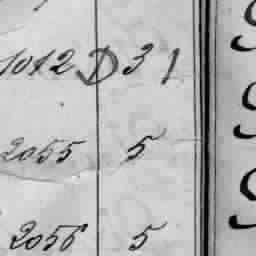 1012 D 3 1
2055 5
2056 5